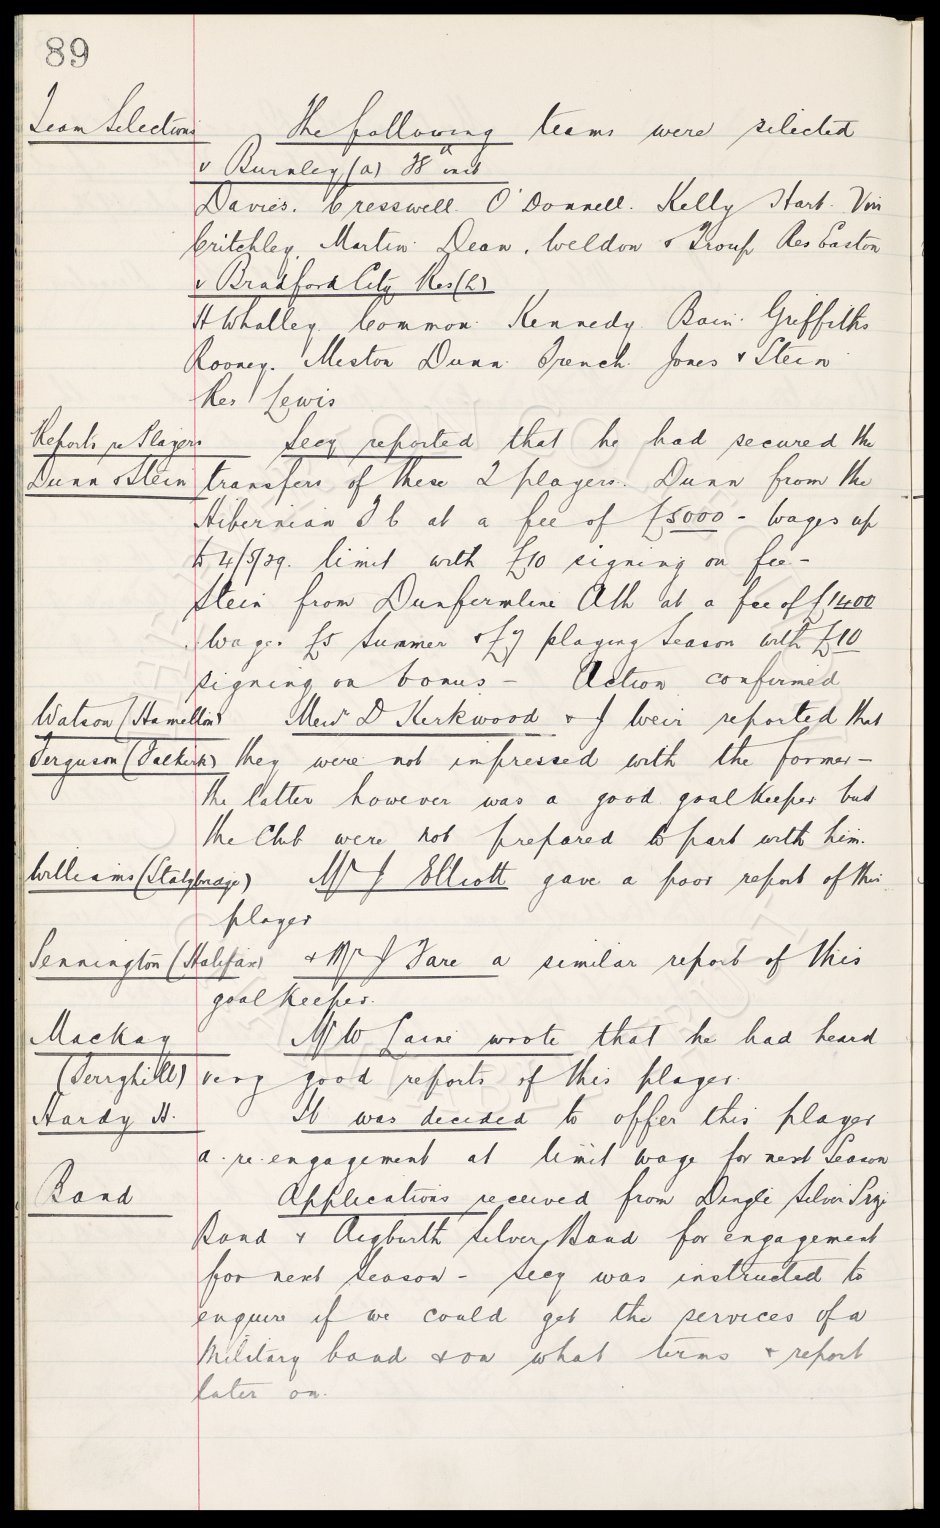 89
Team Selections The following teams were selected
v Burnley (a) 28th inst
Davies. Cresswell. O'Donnell. Kelly Hart. Viri
Critchley. Martin. Dean. Weldon & Troup Res Easton
v Bradford City Res (h)
H Whalley. Common. Kennedy. Bain. Griffiths
Rooney. Meston Dunn. French. Jones & Stein
Res Lewis
Reports re Players Secy reported that he had secured the
Dunn & Stein transfers of these 2 players. Dunn from the
Hibernian F C at a fee of £5000 - Wages up
to 4/5/29. limit with £10 signing on fee -
Stein from Dunfermline Ath at a fee of £1400
Wages £5 Summer & £7 playing Season with £10
signing on bonus - Action confirmed
Watson (Hamilton) Messrs D Kirkwood & J Weir reported that
Ferguson (Falkirk) they were not inpressed with the former -
the latter however was a good goalkeeper but
the Club were not prepared to part with him.
Williams (Stalybridge) Mr J Elliott gave a poor report of this
player
Sennington (Halifax) & Mr J Fare a similar report of this
goalkeeper.
Mackay Mr W Laine wrote that he had heard
(Terryhill) very good reports of this player.
Hardy H. It was decided to offer this player
a re-engagement at limit wage for next Season
Band Applications received from Dingle Silver Prize
Band & Aigburth Silver Band for engagement
for next Season - Secy was instructed to
enquire if we could get the services of a
Military band & on what terms & report
later on.